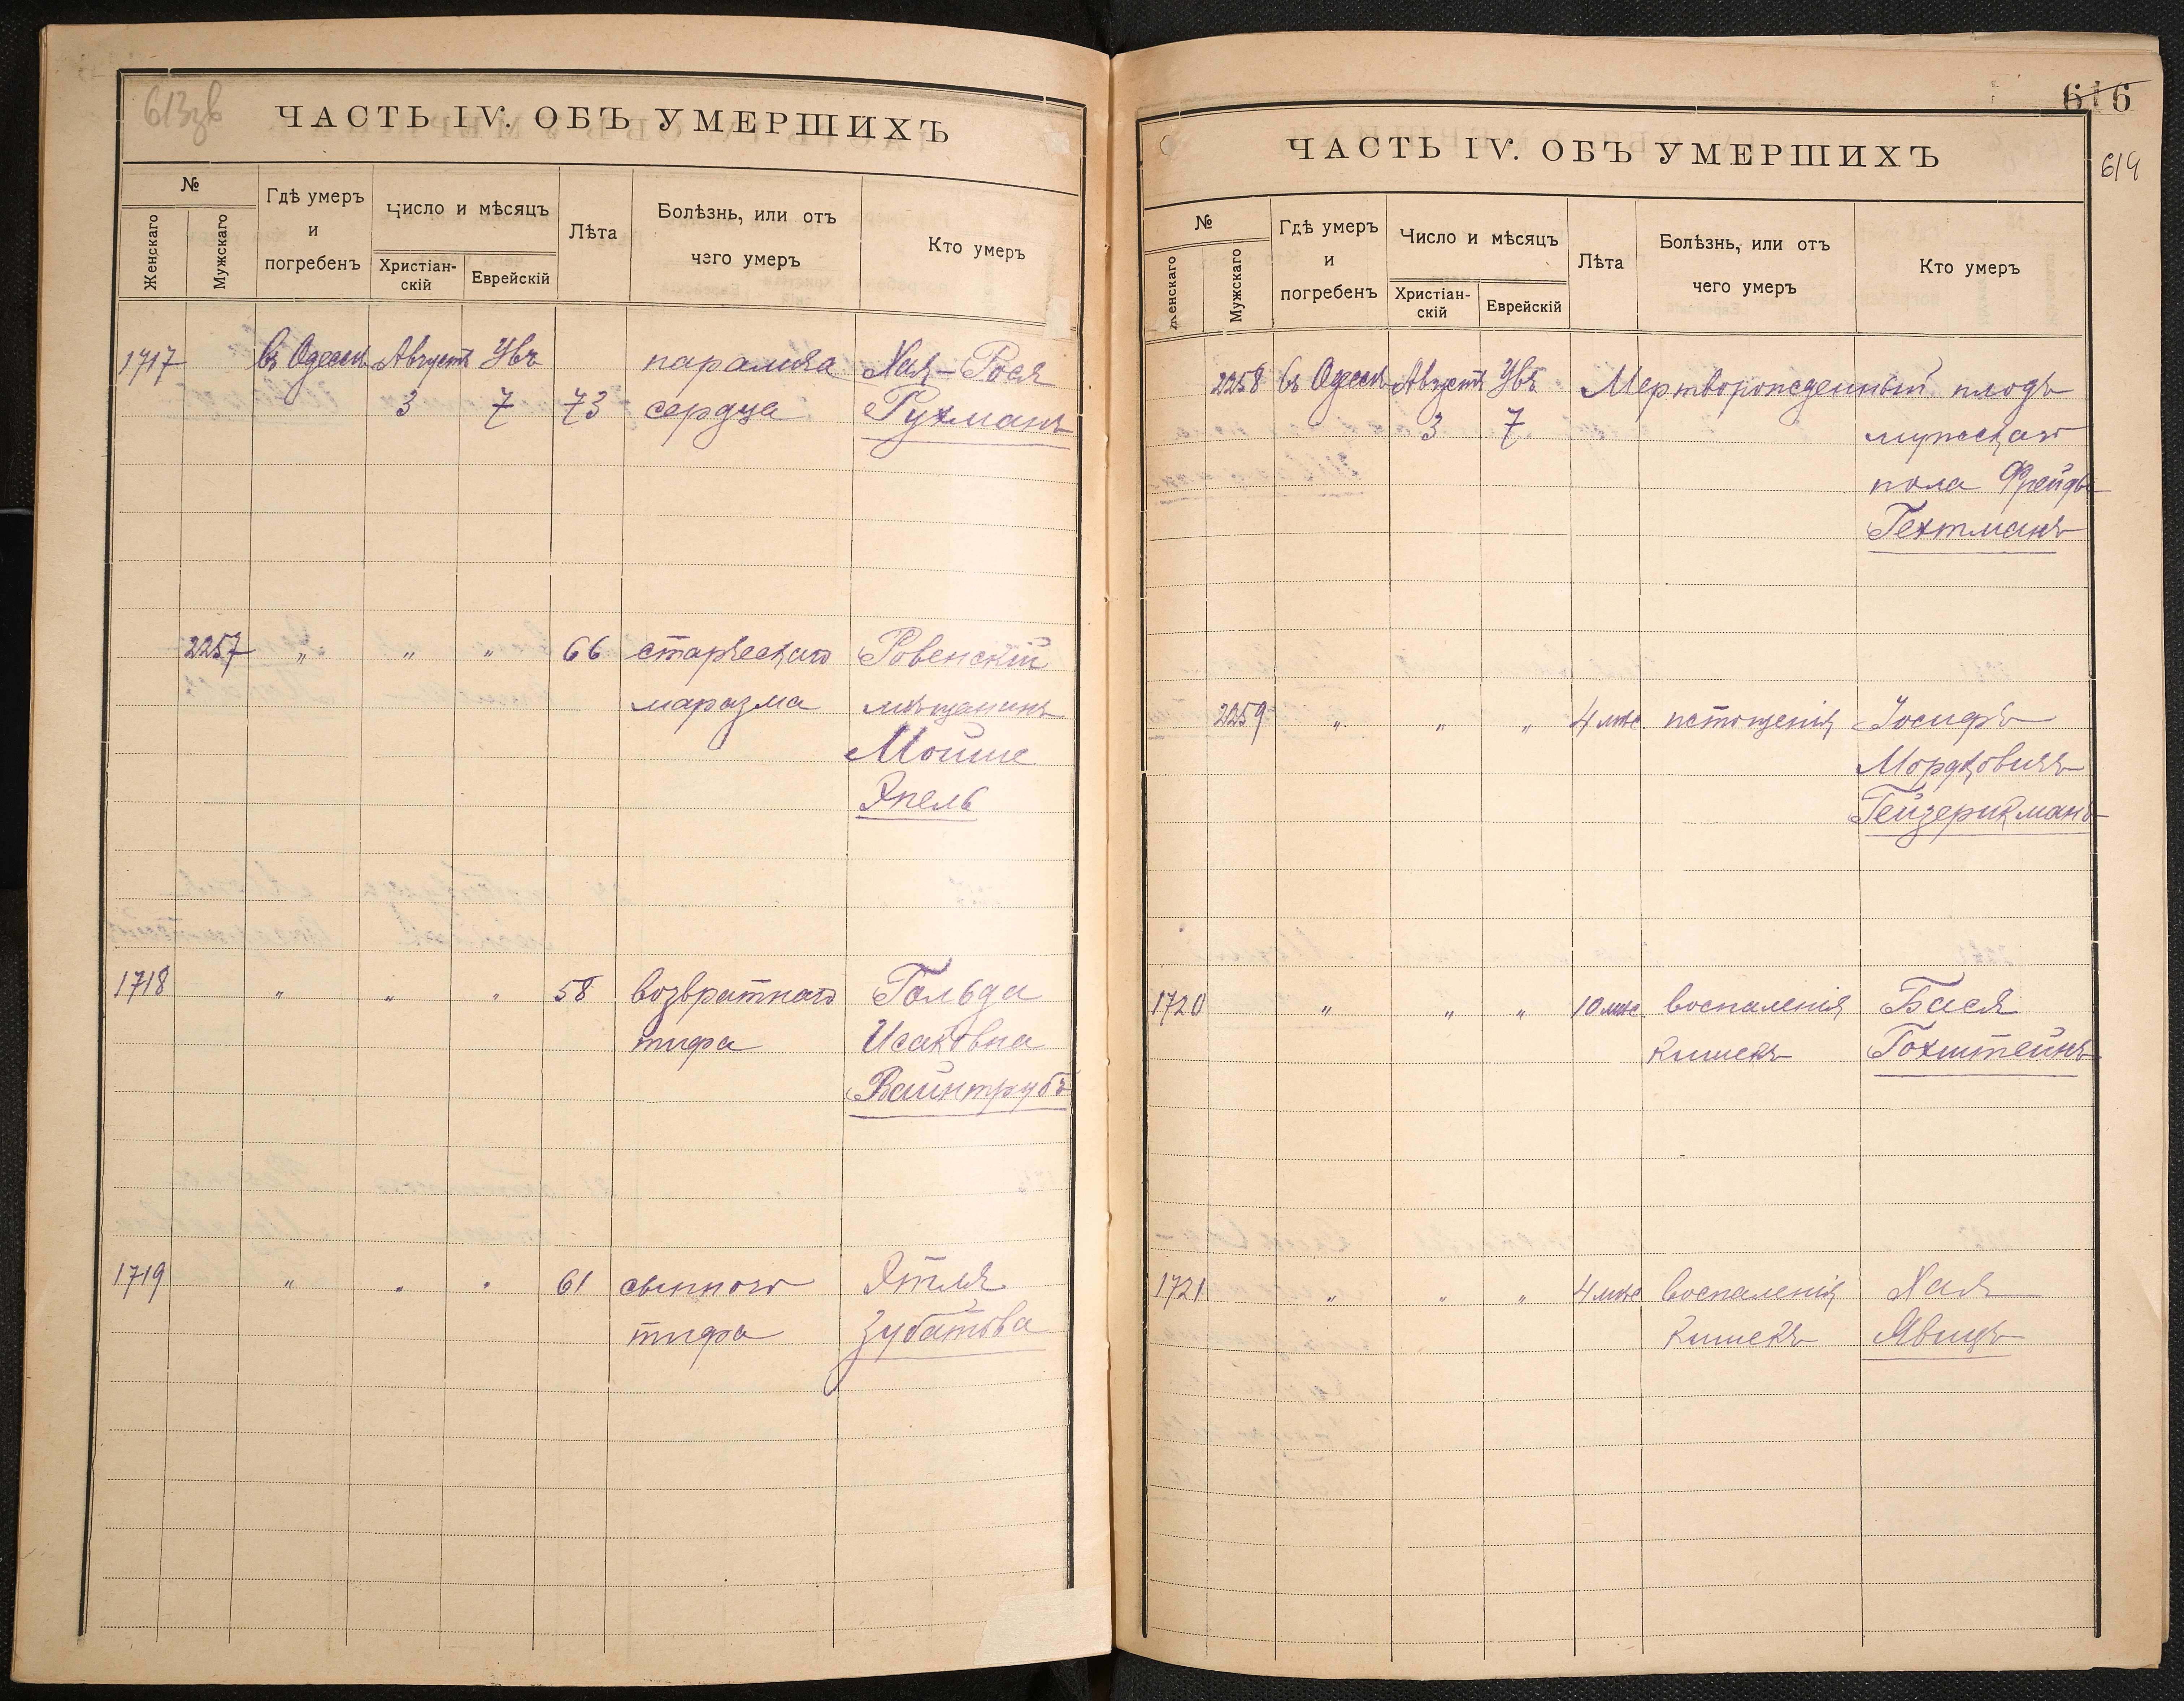 613зв
ЧАСТЬ IV. ОБЪ УМЕРШИХЪ
№
Женскаго
Мужскаго
Гдѣ умеръ
и
погребенъ
Число и мѣсяцъ
Христіан-
скій
Еврейскій
Лѣта
Болѣзнь, или отъ
чего умеръ
Кто умеръ
1717 въ Одессѣ Августъ Увъ паралича Хая-Рося
3 7 73 сердца Рухманъ
2257 „ „ „ 66 старческаго Ровенскій
маразма мѣщанинъ
Мойше
Япель
1718 „ „ „ 58 возвратнаго Гольда
тифа Исаковна
Вайнтрубъ
1719 „ „ „ 61 сыпного Этля
тифа Зубатова
616
614
ЧАСТЬ IV. ОБЪ УМЕРШИХЪ
№
Женскаго
Мужскаго
Гдѣ умеръ
и
погребенъ
Число и мѣсяцъ
Христіан-
скій
Еврейскій
Лѣта
Болѣзнь, или отъ
чего умеръ
Кто умеръ
2258 въ Одессѣ Августъ Увъ Мертворожденный плодъ
3 7 мужскаго
пола Фрейды
Гехтманъ
2259 „ „ „ 4 мѣс истощенія Іосифъ
Мордковичъ
Гейзерикманъ
1720 „ „ „ 10 мѣс. воспаленія Бася
кишекъ Гохштейнъ
1721 „ „ „ 4 мѣс воспаленія Хая
кишекъ Явицъ